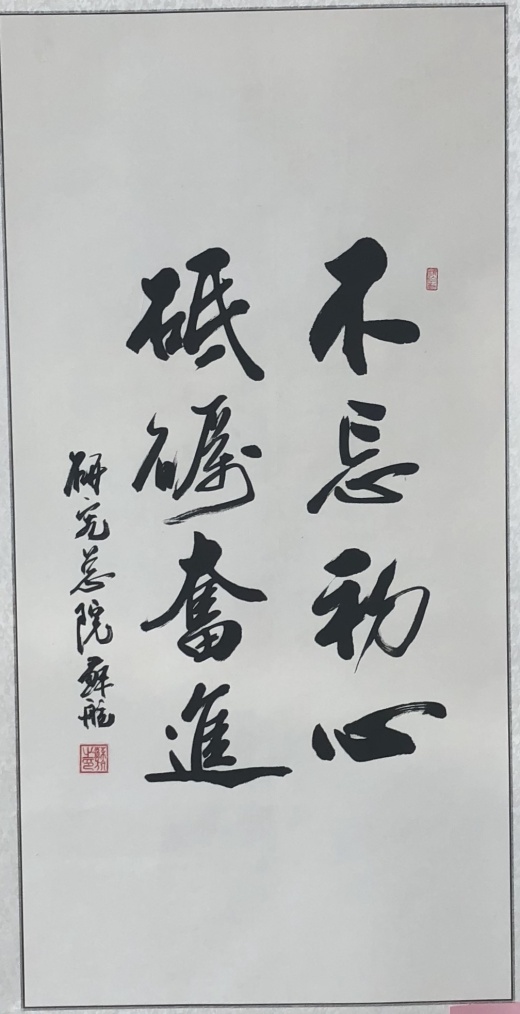 不忘初心
砥礪奮進
研究总院 蘇航